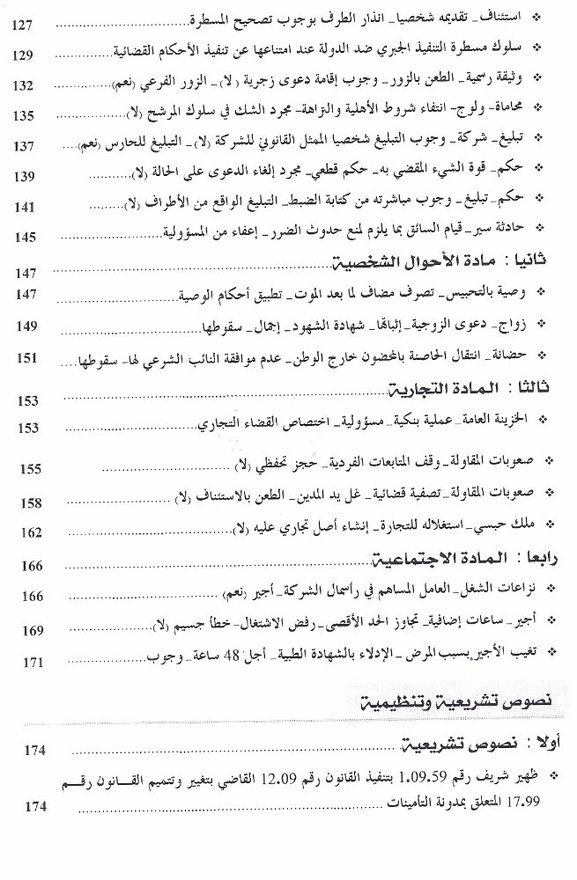 ❖ استئناف_ تقديمه شخصيا_ انذار الطرف بوجوب تصحيح المسطرة ........ 127
❖ سلوك مسطرة التنفيذ الجبري ضد الدولة عند امتناعها عن تنفيذ الأحكام القضائية ........ 129
❖ وثيقة رسمية_ الطعن بالزور_ وجوب إقامة دعوى زجرية (لا)_ الزور الفرعي (نعم) ........ 132
❖ محاماة- ولوج- انتفاء شروط الأهلية والتراهة- مجرد الشك في سلوك المرشح (لا) ........ 135
❖ تبليغ_ شركة_ وجوب التبليغ شخصيا الممثل القانوني للشركة (لا)_ التبليغ للحارس (نعم) ........ 137
❖ حكم_ قوة الشيء المقضي به_ حكم قطعي_ مجرد إلغاء الدعوى على الحالة (لا) ........ 139
❖ حكم_ تبليغ_ وجوب مباشرته من كتابة الضبط_ التبليغ الواقع من الأطراف (لا) ........ 141
❖ حادثة سير_ قيام السائق بما يلزم لمنع حدوث الضرر_ إعفاء من المسؤولية ........ 145
ثانيا : مادة الأحوال الشخصية ........ 147
❖ وصية بالتحبيس_ تصرف مضاف لما بعد الموت_ تطبيق أحكام الوصية ........ 147
❖ زواج_ دعوى الزوجية_ إثباتها_ شهادة الشهود_ إجمال_ سقوطها ........ 149
❖ حضانة_ انتقال الحاضنة بالمحضون خارج الوطن_ عدم موافقة النائب الشرعي لها_ سقوطها ........ 151
ثالثا : المادة التجارية ........ 153
❖ الخزينة العامة_ عملية بنكية_ مسؤولية_ اختصاص القضاء التجاري ........ 153
❖ صعوبات المقاولة_ وقف المتابعات الفردية_ حجز تحفظي (لا) ........ 155
❖ صعوبات المقاولة_ تصفية قضائية_ غل يد المدين_ الطعن بالاستئناف (لا) ........ 158
❖ ملك حبسي_ استغلاله للتجارة_ إنشاء أصل تجاري عليه (لا) ........ 162
رابعا : المادة الاجتماعية ........ 166
❖ نزاعات الشغل_ العامل المساهم في رأسمال الشركة_ أجير (نعم) ........ 166
❖ أجير_ ساعات إضافية_ تجاوز الحد الأقصى_ رفض الاشتغال_ خطأ جسيم (لا) ........ 169
❖ تغيب الأجير بسبب المرض_ الإدلاء بالشهادة الطبية_ أجل 48 ساعة_ وجوب ........ 171
نصوص تشريعية وتنظيمية
أولا : نصوص تشريعية ........ 174
❖ ظهير شريف رقم 1.09.59 بتنفيذ القانون رقم 12.09 القاضي بتغيير وتتميم القـــانون رقـــم
17.99 المتعلق بمدونة التأمينات ........ 174